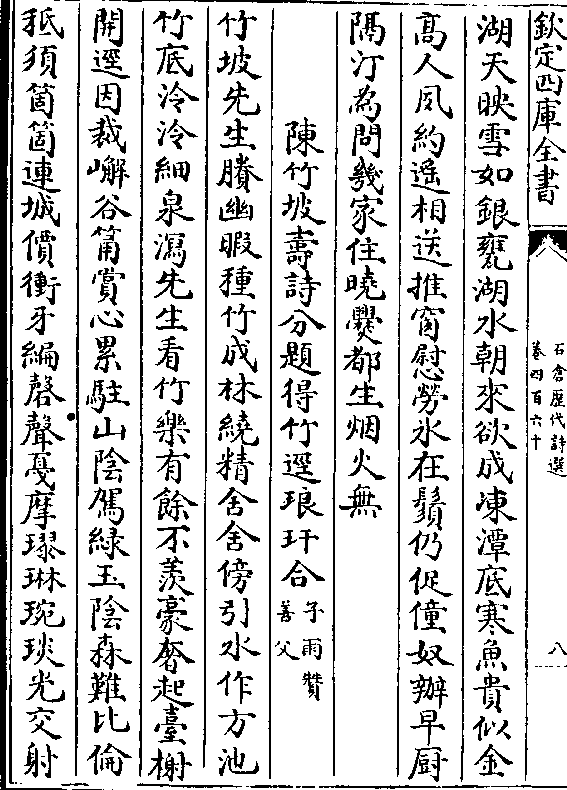 欽定四庫全書
石倉歷代詩選
卷四百六十
八
湖天映雪如銀甕湖水朝來欲成凍潭底寒魚貴似金
高人夙約遥相送推窗慰勞氷在鬚仍促僮奴辦早厨
隔汀為問幾家住曉爨都生烟火無
陳竹坡壽詩分題得竹逕琅玕合子雨贊善父
竹坡先生賸幽暇種竹成林繞精舍舍傍引水作方池
竹底泠泠細泉瀉先生看竹樂有餘不羨豪奢起臺榭
開逕因裁嶰谷筩賞心累駐山陰駕緑玉陰森難比倫
秪須箇箇連城價衝牙編磬聲戞摩璆琳琬琰光交射